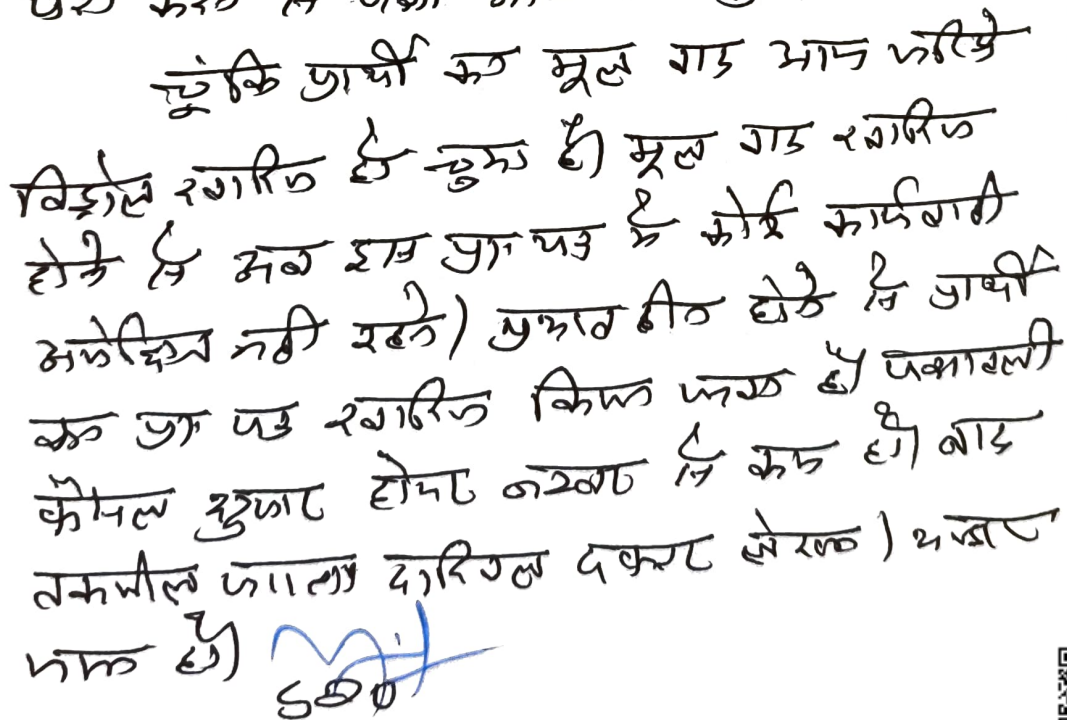 चूंकि प्रार्थी का मूल वाद आज जरिये
विड्रोल खारिज हो चुका है। मूल वाद खारिज
होने से अब इस प्रा पत्र में कोई कार्यवाही
अपेक्षित नही रहने। प्रभाव हीन होने से प्रार्थी
का प्रा पत्र खारिज किया जाता है। पत्रावली
फैसल शुमार होकर नम्बर से कम हो। बाद
तकमील दाखिल दफ्तर हो
जाता है।
SDO